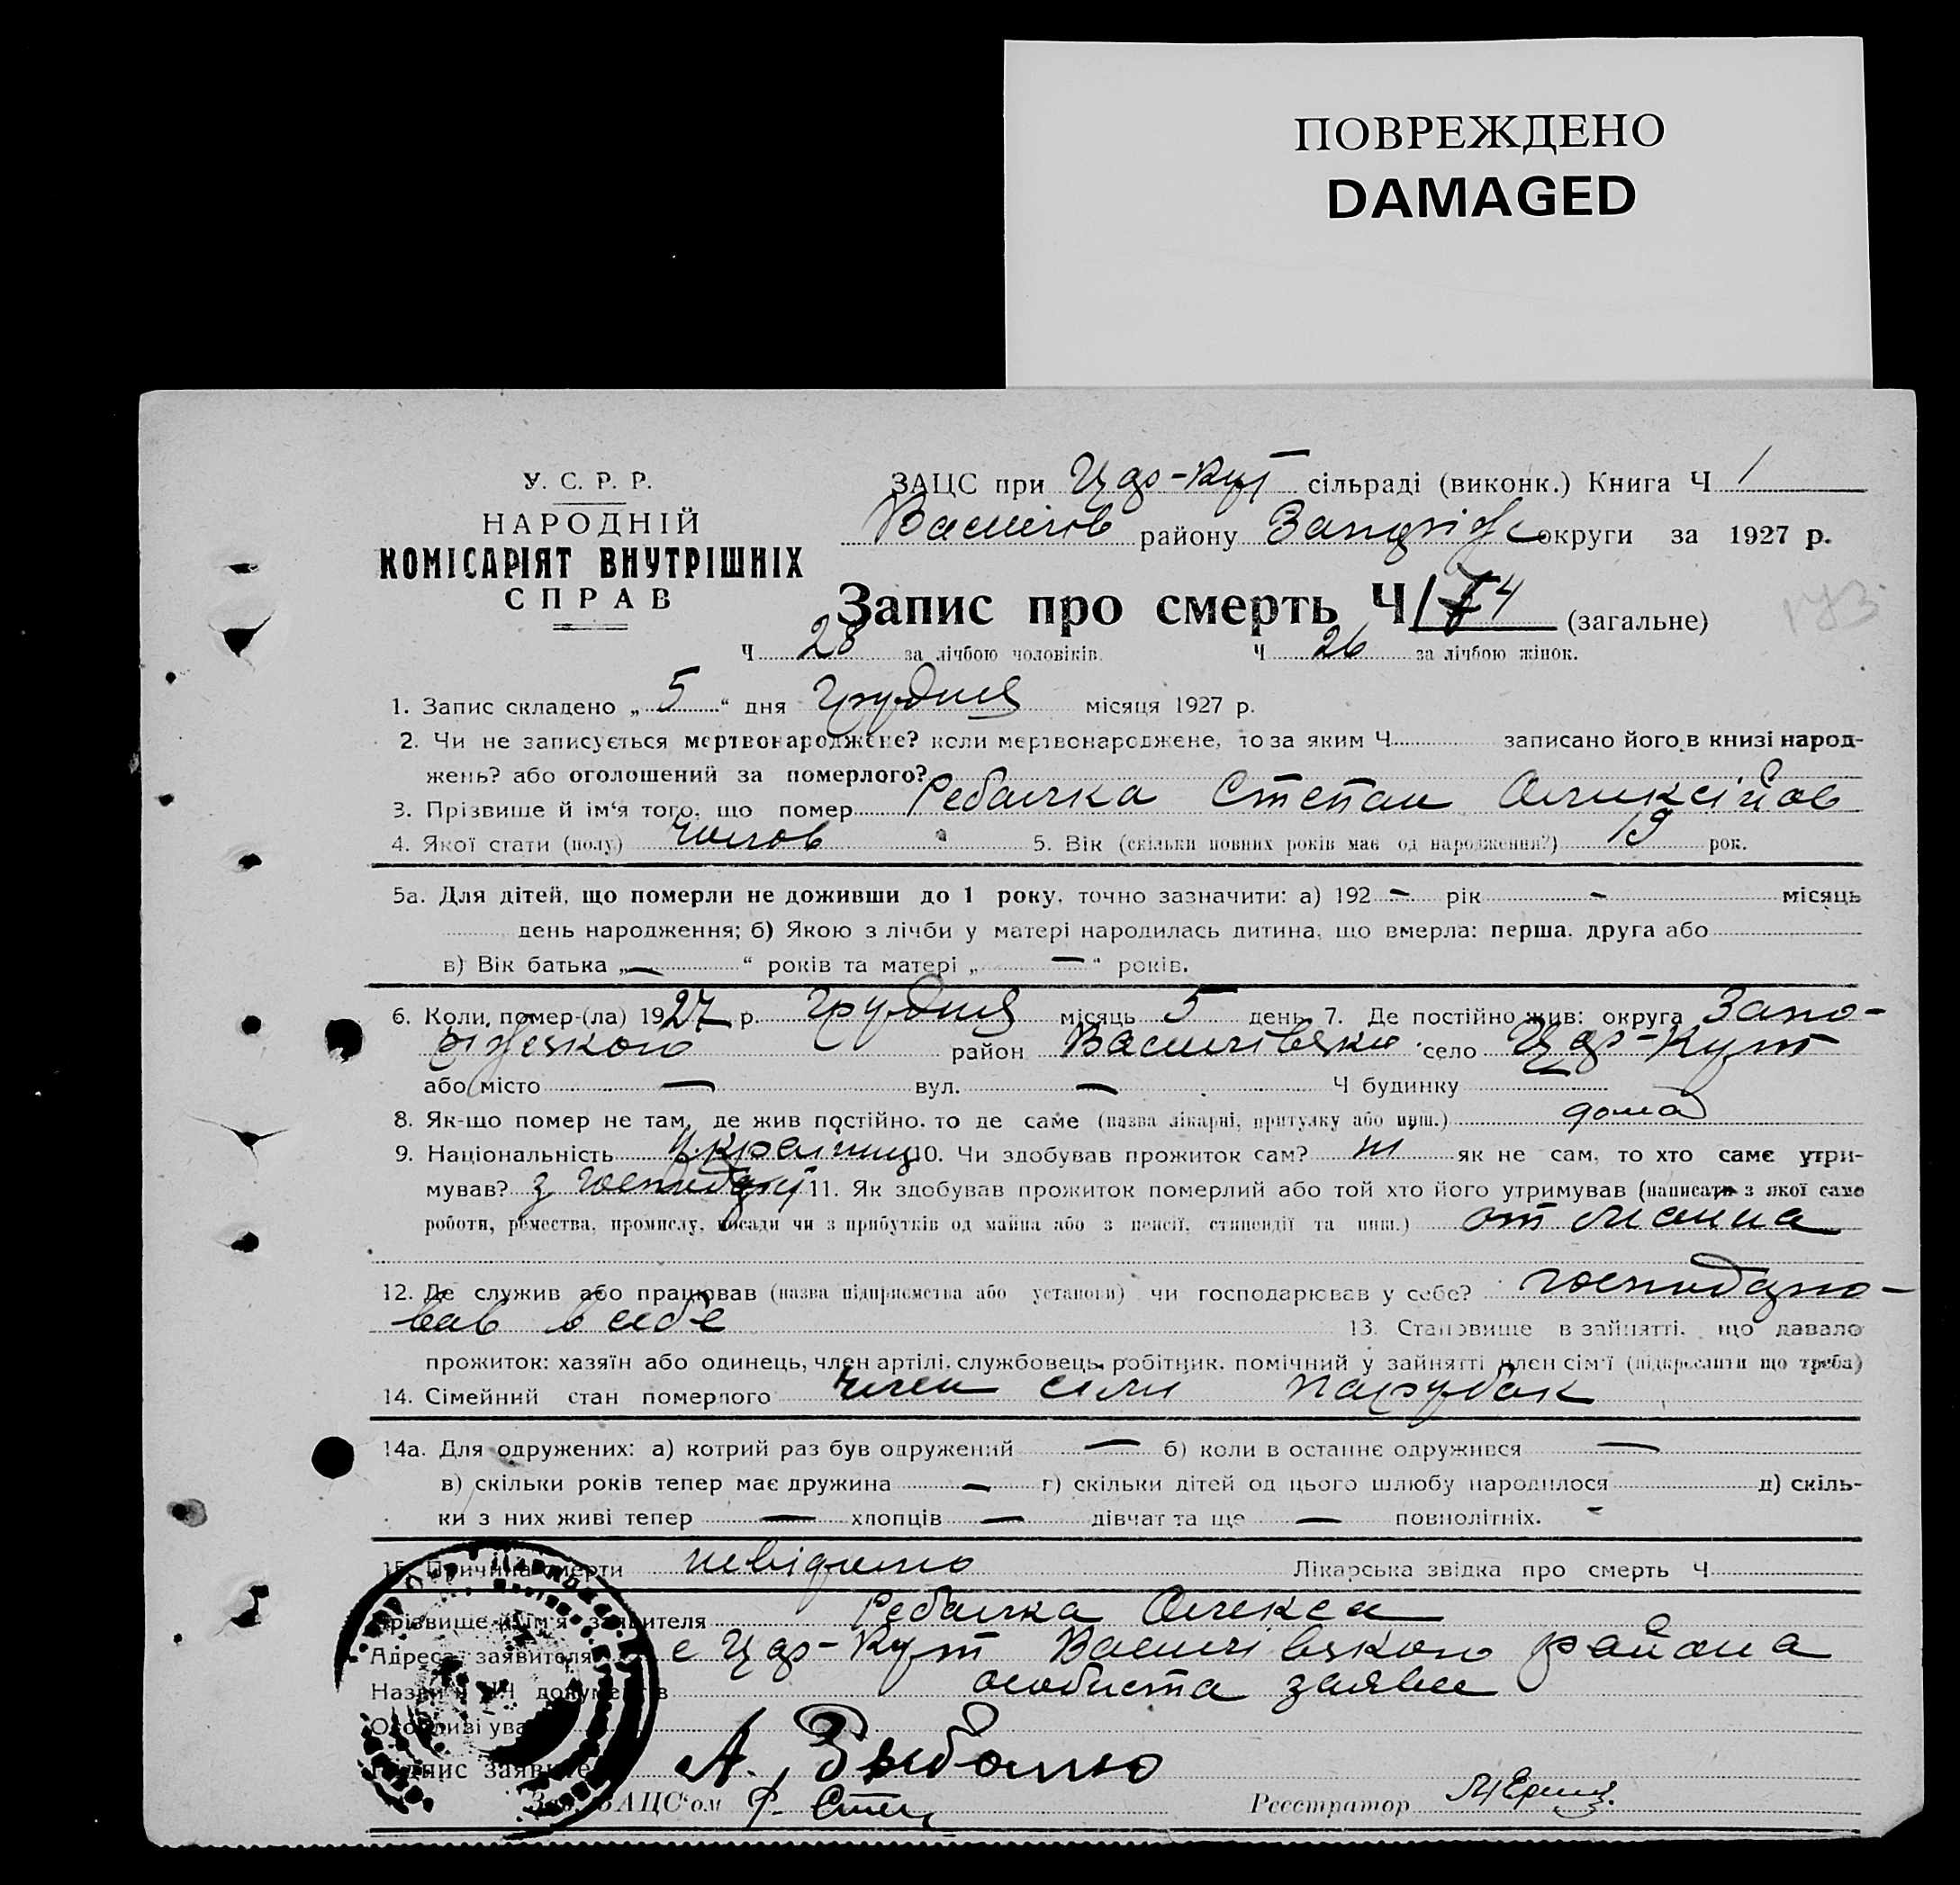 ПОВРЕЖДЕНО
DAMAGED
У. С. Р. Р.
НАРОДНІЙ
КОМІСАРІЯТ ВНУТРІШНІХ
СПРАВ
ЗАЦС при Цар-Кут сільраді (виконк.) Книга Ч 1
Василів району Запоріж округи за 1927 р.
Запис про смерть Ч (загальне)
173
Ч 28 за лічбою чоловіків. Ч 26 за лічбою жінок.
1. Запис складено „ 5 “ дня Грудня місяця 1927 р.
2. Чи не записується мертвонароджене? коли мертвонароджене, то за яким Ч записано його в книзі народ-
жень? або оголошений за померлого?
3. Прізвище й ім‘я того, що помер Ребалка Степан Олексійов
4. Якої стати (полу) чолов 5. Вік (скільки повних років має од народження?) 19 рок.
5а. Для дітей, що померли не доживши до 1 року, точно зазначити: а) 192 – рік – місяць
день народження; б) Якою з лічби у матері народилась дитина, що вмерла: перша, друга або
в) Вік батька „ — “ років та матері „ — “ років.
6. Коли помер-(ла) 1927 р. Грудня місяць 5 день 7. Де постійно жив: округа Запо-
ріжского район Василівски село Цар-Кут
або місто — вул. — Ч будинку
8. Як-що помер не там, де жив постійно, то де саме (назва лікарні, притулку або инш.) дома
9. Національність українц 10. Чи здобував прожиток сам? як не сам, то хто саме утри-
мував? з 11. Як здобував прожиток померлий або той хто його утримував (написати з якої саме
роботи, ремества, промислу, посади чи з прибутків од майна або з пенсії, стипендії та инш.) от
12. Де служив або працював (назва підприємства або установи) чи господарював у себе? господарю-
вав в себе 13. Становище в зайнятті, що давало
прожиток: хазяїн або одинець, член артілі, службовець, робітник, помічний у зайнятті член сім‘ї (підкреслити що треба)
14. Сімейний стан померлого член сімі парубок
14а. Для одружених: а) котрий раз був одружений — б) коли в останнє одружився —
в) скільки років тепер має дружина — г) скільки дітей од цього шлюбу народилося д) скіль-
ки з них живі тепер — хлопців — дівчат та ще — повнолітніх.
15. Причина смерти невідомо Лікарська звідка про смерть Ч
Прізвище й ім‘я заявителя Ребалка Олекса
Адреса заявителя с Цар-Кут Василівского района
Назви й Ч.Ч документів особиста заява
Особливі ува
Підпис заявите А.
Зав. ЗАЦС‘ом Реєстратор